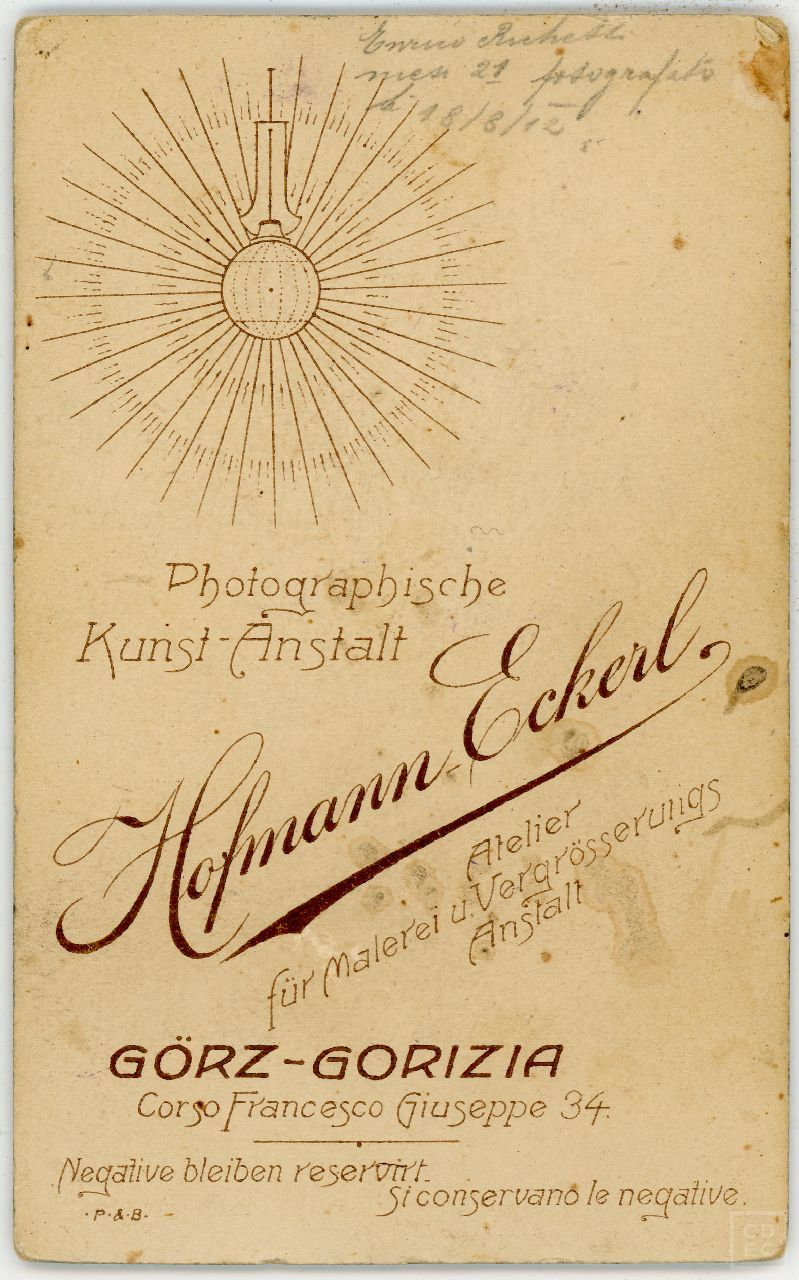 Enrico Richetti
mesi 21 fotografato
18/8/12
Photographische
Kunst-Anstalt
Hofmann-Eckerl
Atelier
für Malerei u. Vergrösserungs
Anstalt
GÖRZ-GORIZIA
Corso Francesco Giuseppe 34.
Negative bleiben reservirt.
Si conservano le negative.
·P·&·B·
CD
EC